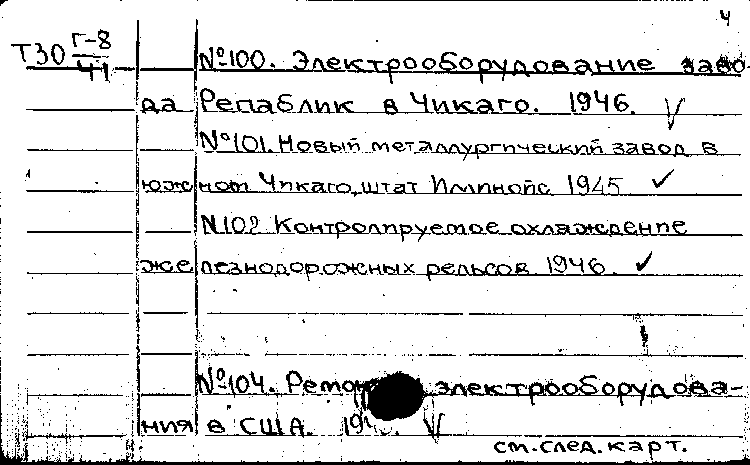 4
Т30 Г-8
41
№100. Электрооборудование заво-
да Репаблик в Чикаго. 1946.
№101. Новый металлургический завод в
южном Чикаго, штат Иллинойс 1945
№102 Контролируемое охлаждение
железнодорожных рельсов 1946.
№104. электрооборудова-
ния в США.
см. след. карт.